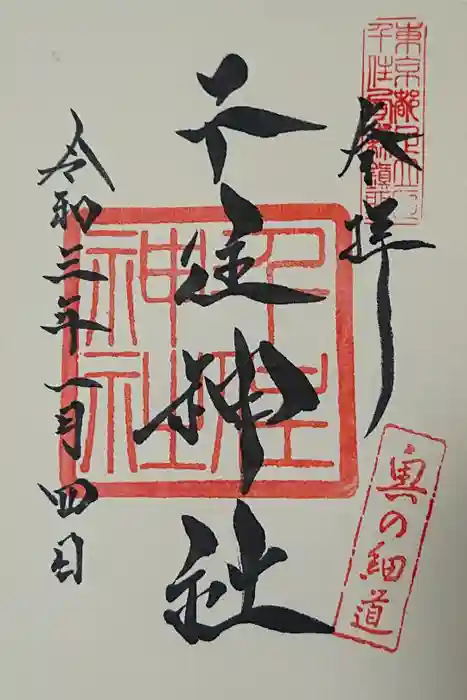 東京都足立区
千住宮元町鎮座
奉拝
千住神社
千住
神社
令和三年一月四日
奥の細道